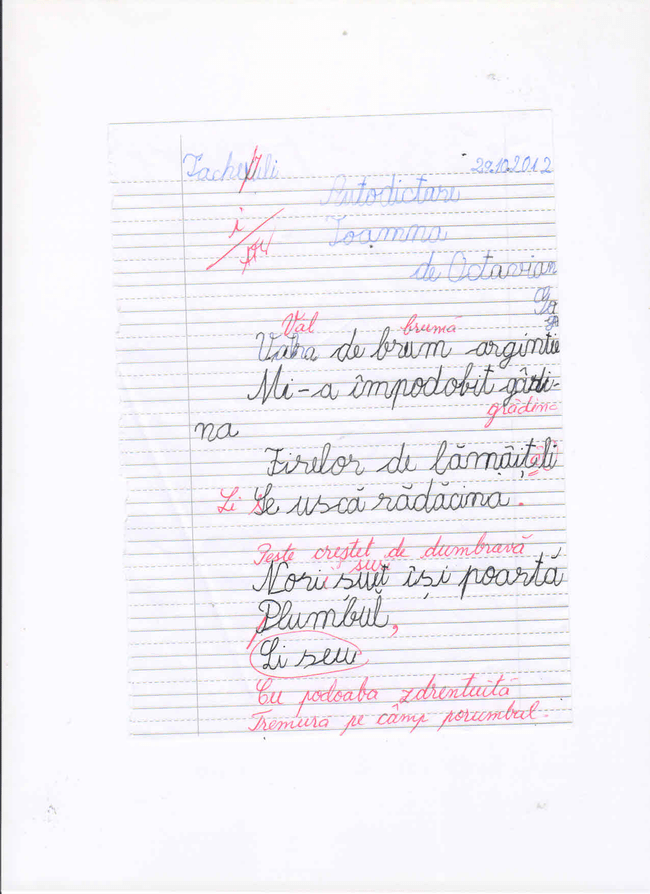 29.10.2012
Autodictare
Toamna
de Octavian
Val brumă
de brum argintie
Mi-a împodobit
grădina
na
Firelor de lămâițali
Li Se uscă rădăcina.
Peste creștet de dumbravă
sur
Norii își poartă
Plumbul,
Li seu
Cu podoaba zdrențuită
Tremură pe câmp porumbul.